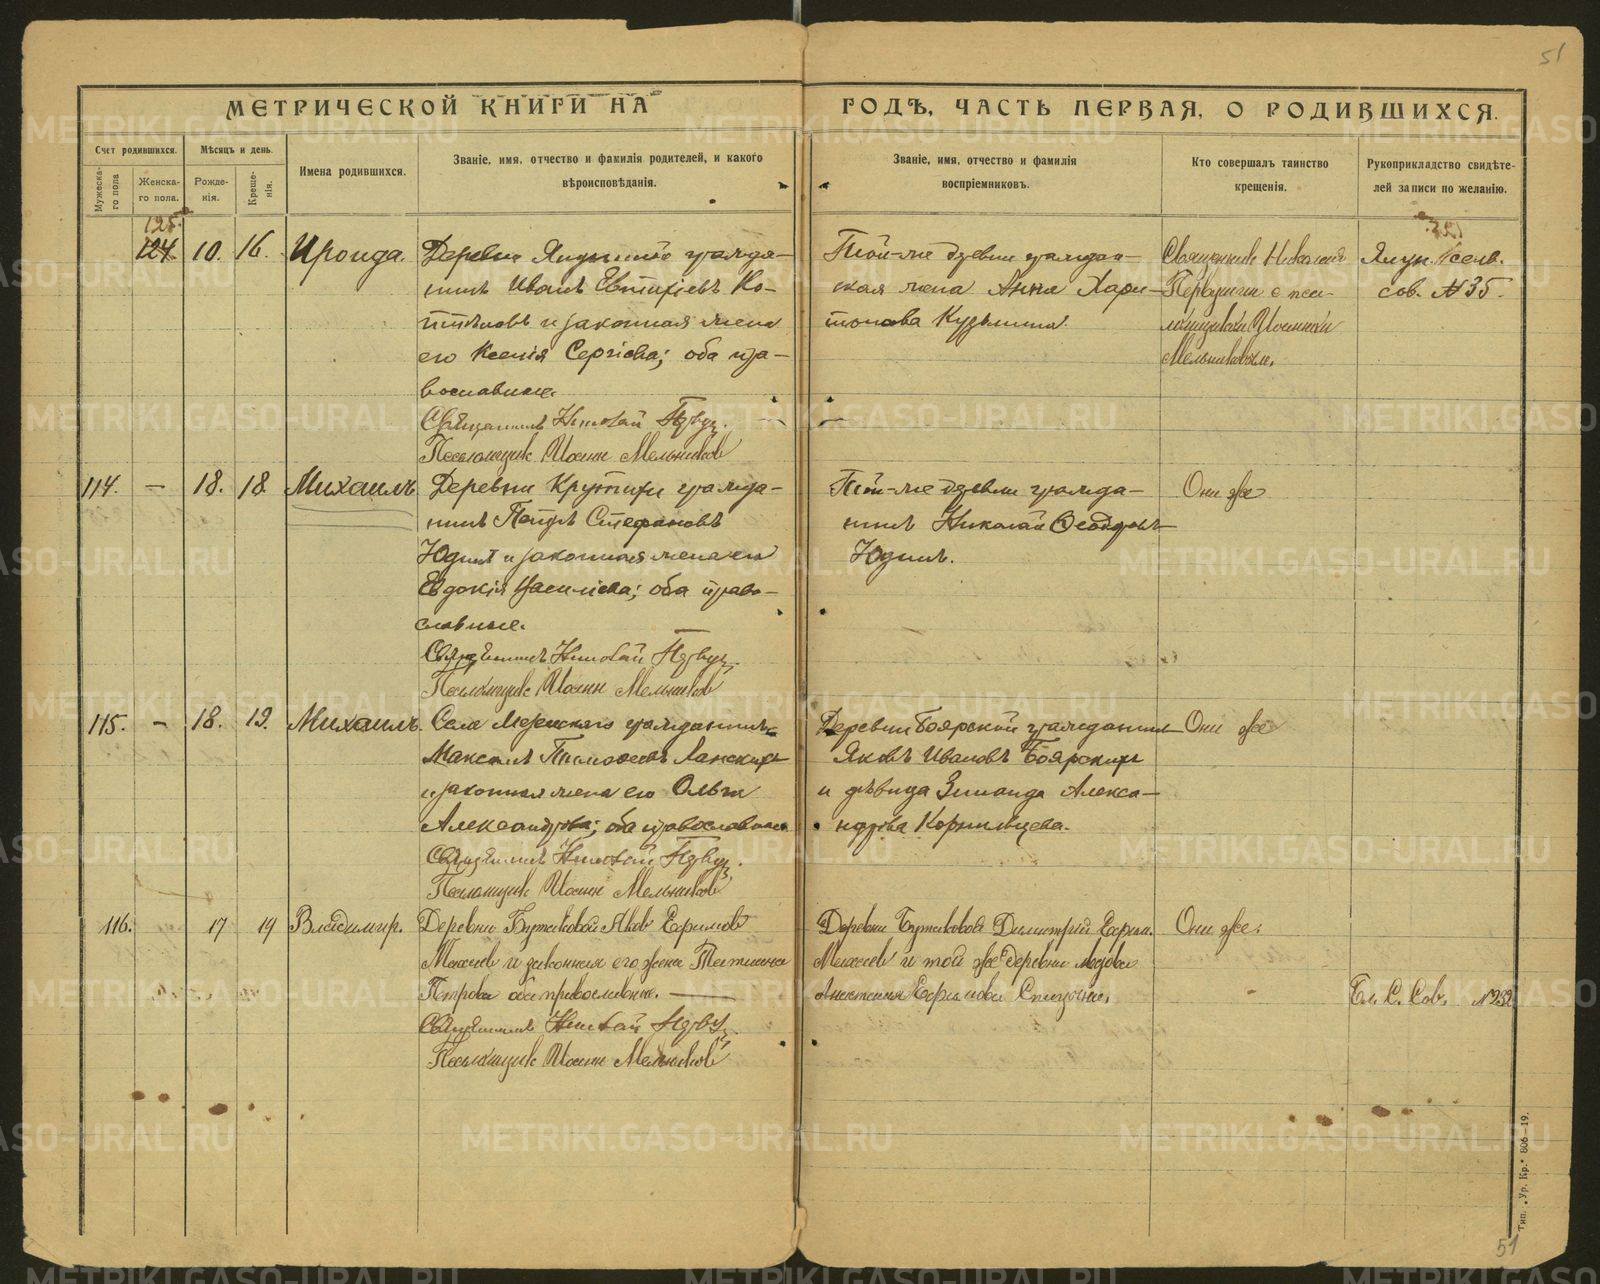 51
МЕТРИЧЕСКОЙ КНИГИ НА
ГОДЪ, ЧАСТЬ ПЕРВАЯ, О РОДИВШИХСЯ.
Счет родившихся.
Мѣсяцъ и день.
Мужеска-го пола
Женска-го пола.
Рожде-нія.
Креще-нія.
Имена родившихся.
Званіе, имя, отчество и фамилія родителей, и какого
вѣроисповѣданія.
Званіе, имя, отчество и фамилія
воспріемниковъ.
Кто совершалъ таинство
крещенія.
Рукоприкладство свидѣте-
лей записи по желанію.
125.
124. 10. 16. Ироида.
Деревни гражда-
нинъ Иванъ
и законная жена
его Ксенія Сергіева; оба пра-
вославные.
Священникъ Николай
Псаломщик Иоанн Мельников
Той-же дрвни граждан-
ская жена Анна Хари-
тонова Кузьмина.
Священник Николай
с пса-
ломщиком Иоанном
Мельниковым.
сов. № 35.
114. — 18. 18. Михаилъ
Деревни гражда-
нинъ Петръ Стефановъ
Юдинъ и законная жена его
Евдокія Василіева; оба право-
славные.
Священникъ Николай
Псаломщик Иоанн Мельников
Той-же дрвни гражда-
нинъ Николай Ѳеодоровъ
Юдинъ.
Они же
115. — 18. 19. Михаилъ.
Села гражданинъ
Максимъ Тимоѳеевъ Ланскихъ
и законная жена его Ольга
Александрова; оба православные
Священникъ Николай
Псаломщик Иоанн Мельников
Деревни Боярской гражданин
Яковъ Ивановъ Боярскихъ
и дѣвица Зинаида Алекса-
ндрова Корнильцева.
Они же
116. 17 19 Владимир.
Деревни Бутаковой Яков Ефимов
и законная его жена Татиана
Петрова оба православные.
Священникъ Николай
Псаломщик Иоанн Мельников
Деревни Бутаковой Димитрий Ефим.
и той же деревни вдова
Анастасия Ефимова
Они же.
Бл. С. Сов. № 232
Тип. „Ур. Кр.“ 806—19.
51
METRIKI.GASO-URAL.RU